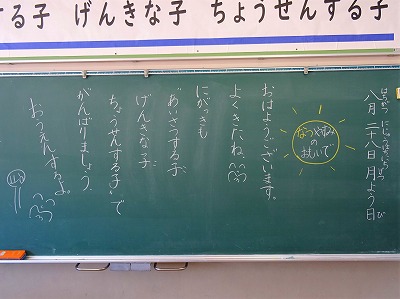 する子 げんきな子 ちょうせんする子
八月二十八日月よう日
なつやすみ
の
おもいで
おはようございます。
よくきたね。
にがっきも
あいさつする子
げんきな子
ちょうせんする子で
がんばりましょう。
おうえんするよ。